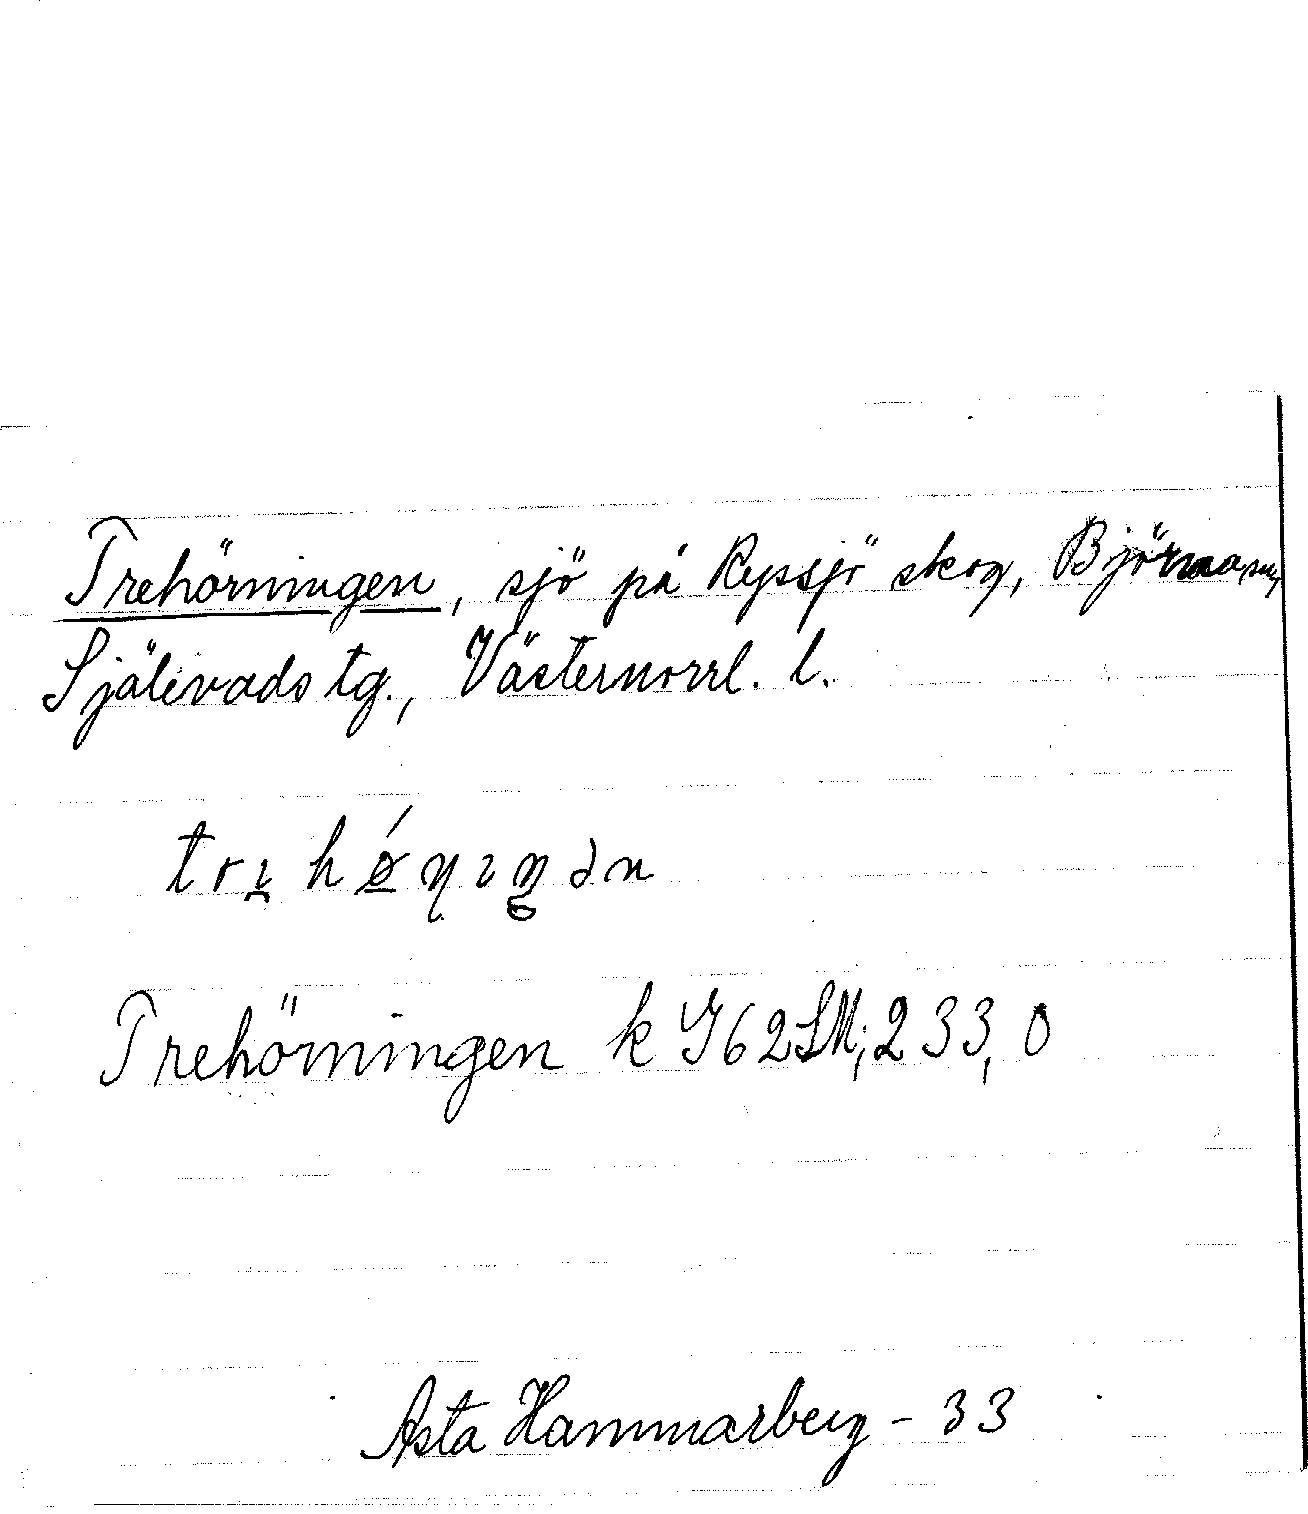 Trehörningen, sjö på Ryssjö skog, Björna sn,
Själevads tg., Västernorrl. l.
Trehörningen k G62SM; 233, 0
Asta Hammarberg - 33